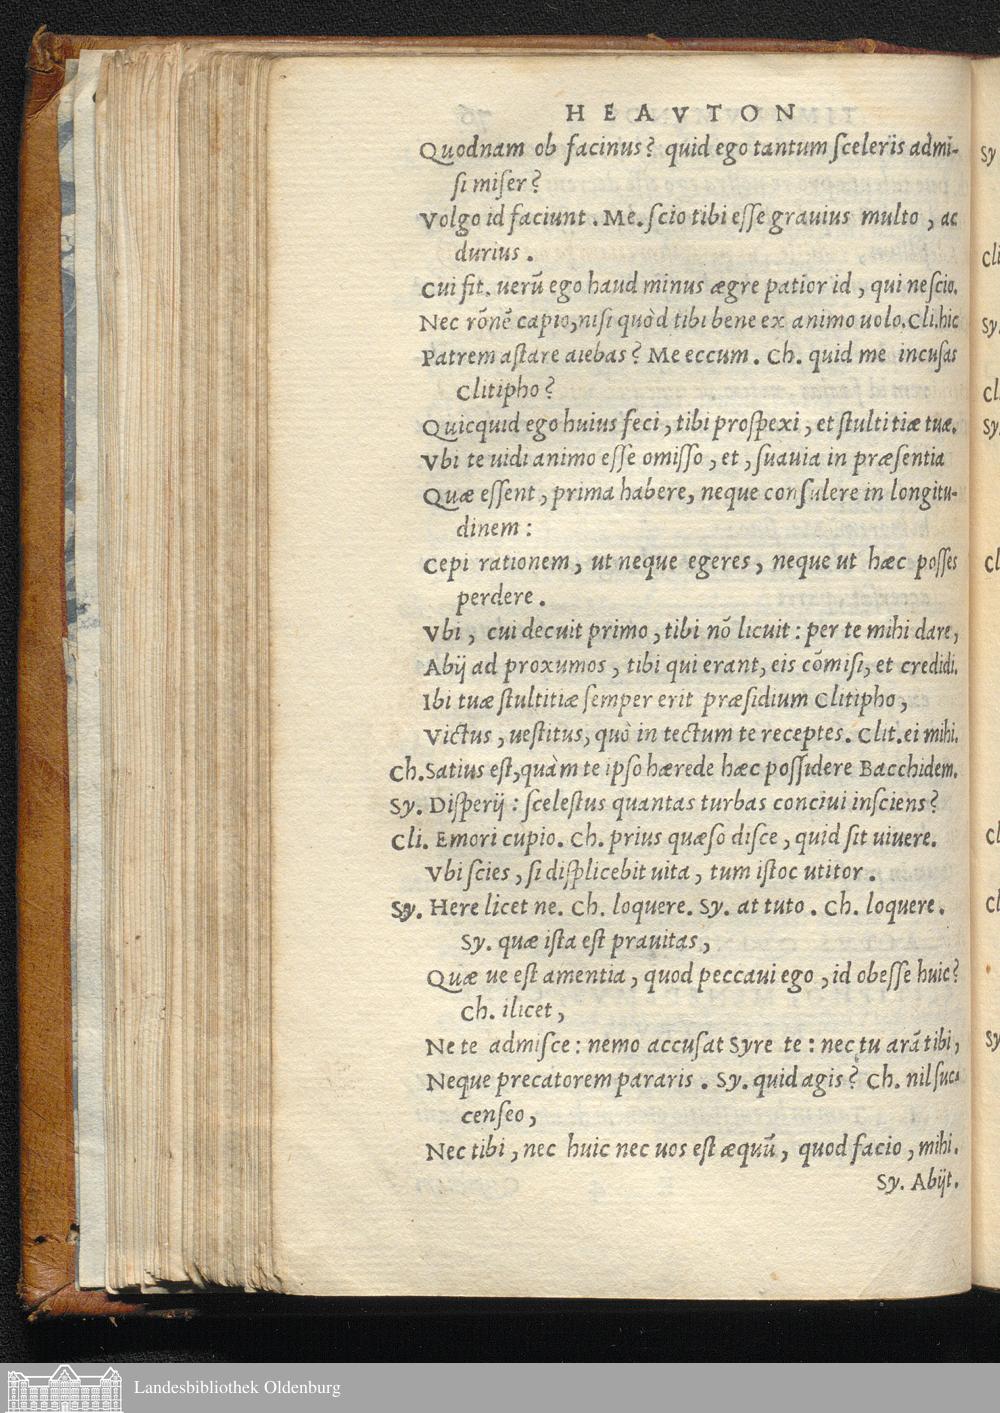 HEAVTON
Quodnam ob facinus? quid ego tantum sceleris admi-
si miser?
Volgo id faciunt. Me. scio tibi esse grauius multo, ac
durius.
Cui fit. uerū ego haud minus ægre patior id, qui nescio.
Nec rōnē capio, nisi quòd tibi bene ex animo uolo. Cli. hic
Patrem astare aiebas? Me eccum. Ch. quid me incusas
Clitipho?
Quicquid ego huius feci, tibi prospexi, et stultitiæ tuæ.
Vbi te uidi animo esse omisso, et, suauia in præsentia
Quæ essent, prima habere, neque consulere in longitu-
dinem:
Cepi rationem, ut neque egeres, neque ut hæc posses
perdere.
Vbi, cui decuit primo, tibi nō licuit: per te mihi dare,
Abij ad proxumos, tibi qui erant, eis cōmisi, et credidi.
Ibi tuæ stultitiæ semper erit præsidium Clitipho,
Victus, uestitus, quò in tectum te receptes. Clit. ei mihi.
Ch. Satius est, quàm te ipso hærede hæc possidere Bacchidem.
Sy. Disperij: scelestus quantas turbas conciui insciens?
Cli. Emori cupio. Ch. prius quæso disce, quid sit uiuere.
Vbi scies, si displicebit uita, tum istoc utitor.
Sy. Here licet ne. Ch. loquere. Sy. at tuto. Ch. loquere.
Sy. quæ ista est prauitas,
Quæ ue est amentia, quod peccaui ego, id obesse huic?
Ch. ilicet,
Ne te admisce: nemo accusat Syre te: nec tu arā tibi,
Neque precatorem pararis. Sy. quid agis? Ch. nil suc-
censeo,
Nec tibi, nec huic nec uos est æquū, quod facio, mihi.
Sy. Abijt.
Sy
cli
Sy.
cl
Sy.
cl
cl
cl
Sy
Landesbibliothek Oldenburg